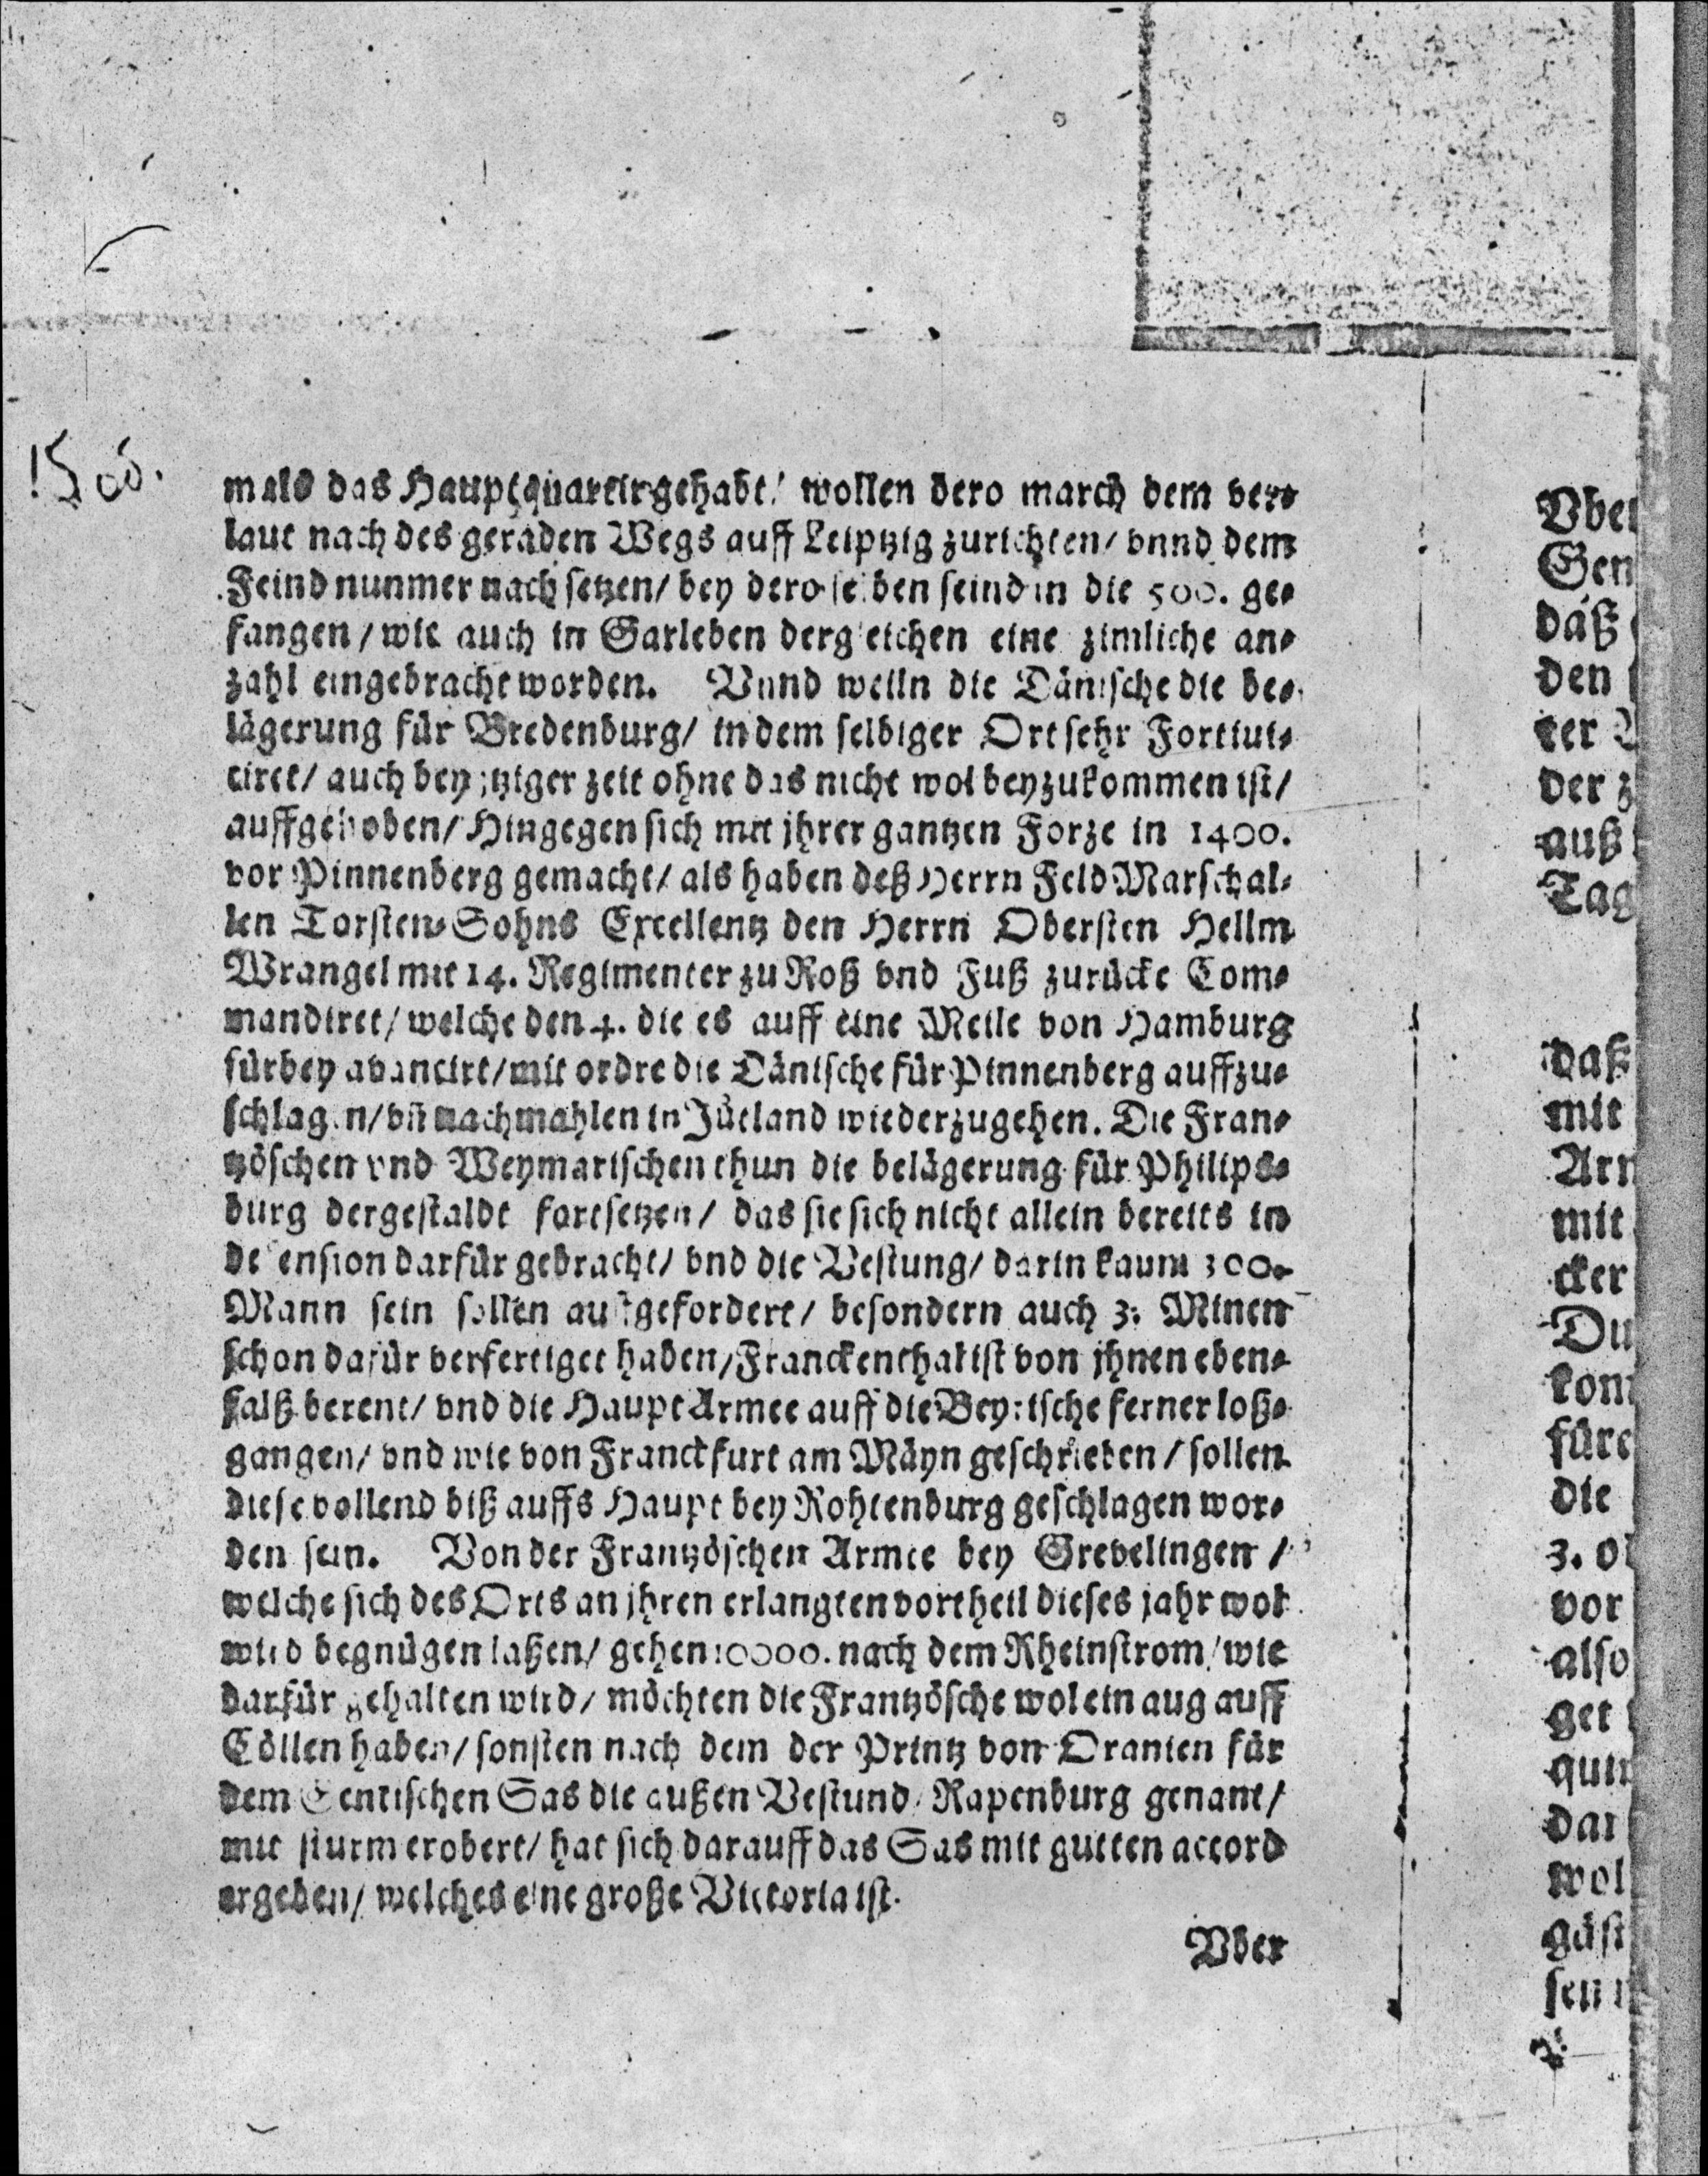 mals das Hauptquartir gehabt / wollen dero march dem ver-
laut nach des geraden Wegs auff Leiptzig zurichten / vnnd dem
Feind nunmer nach setzen / bey deroselben seind in die 500. ge-
fangen / wie auch in Garleben dergleichen eine zimliche an-
zahl eingebracht worden. Vnnd weiln die Dänische die be-
lägerung für Bredenburg / in dem selbiger Ort sehr Fortiui-
ciret / auch bey itziger zeit ohne das nicht wol beyzukommen ist /
auffgehoben / Hingegen sich mit jhrer gantzen Forze in 1400.
vor Pinnenberg gemacht / als haben deß Herrn Feld Marschal-
len Torsten-Sohns Excellentz den Herrn Obersten Hellm
Wrangel mit 14. Regimenter zu Roß vnd Fuß zurücke Com-
mandiret / welche den 4. die es auff eine Meile von Hamburg
fürbey avancirt / mit ordre die Dänische für Pinnenberg auffzu-
schlagen / vñ nachmahlen in Jütland wiederzugehen. Die Fran-
tzöschen vnd Weymarischen thun die belägerung für Philips-
burg dergestaldt fortsetzen / das sie sich nicht allein bereits in
defension darfür gebracht / vnd die Vestung / darin kaum 300.
Mann sein sollen aufgefordert / besondern auch 3. Minen
schon dafür verfertiget haben / Franckenthal ist von jhnen eben-
falß berent / vnd die Haupt Armee auff die Beyrische ferner loß-
gangen / vnd wie von Franckfurt am Mäyn geschrieben / sollen
diese vollend biß auffs Haupt bey Rohtenburg geschlagen wor-
den sein. Von der Frantzöschen Armee bey Grevelingen /
welche sich des Orts an jhren erlangten vortheil dieses jahr wol
wird begnügen laßen / gehen 10000. nach dem Rheinstrom / wie
darfür gehalten wird / möchten die Frantzösche wol ein aug auff
Cöllen haben / sonsten nach dem der Printz von Oranien für
dem Gentischen Sas die außen Vestund / Rapenburg genant /
mit sturm erobert / hat sich darauff das Sas mit gutten accord
ergeben / welches eine große Victoria ist.
Vber
Vber
Gen
daß
den
ter
der z
auß
Tag
daß
mit
Arm
mit
cker
Du
kom
fürc
die
3. o
vor
also
get
quir
dar
wol
gäst
sen